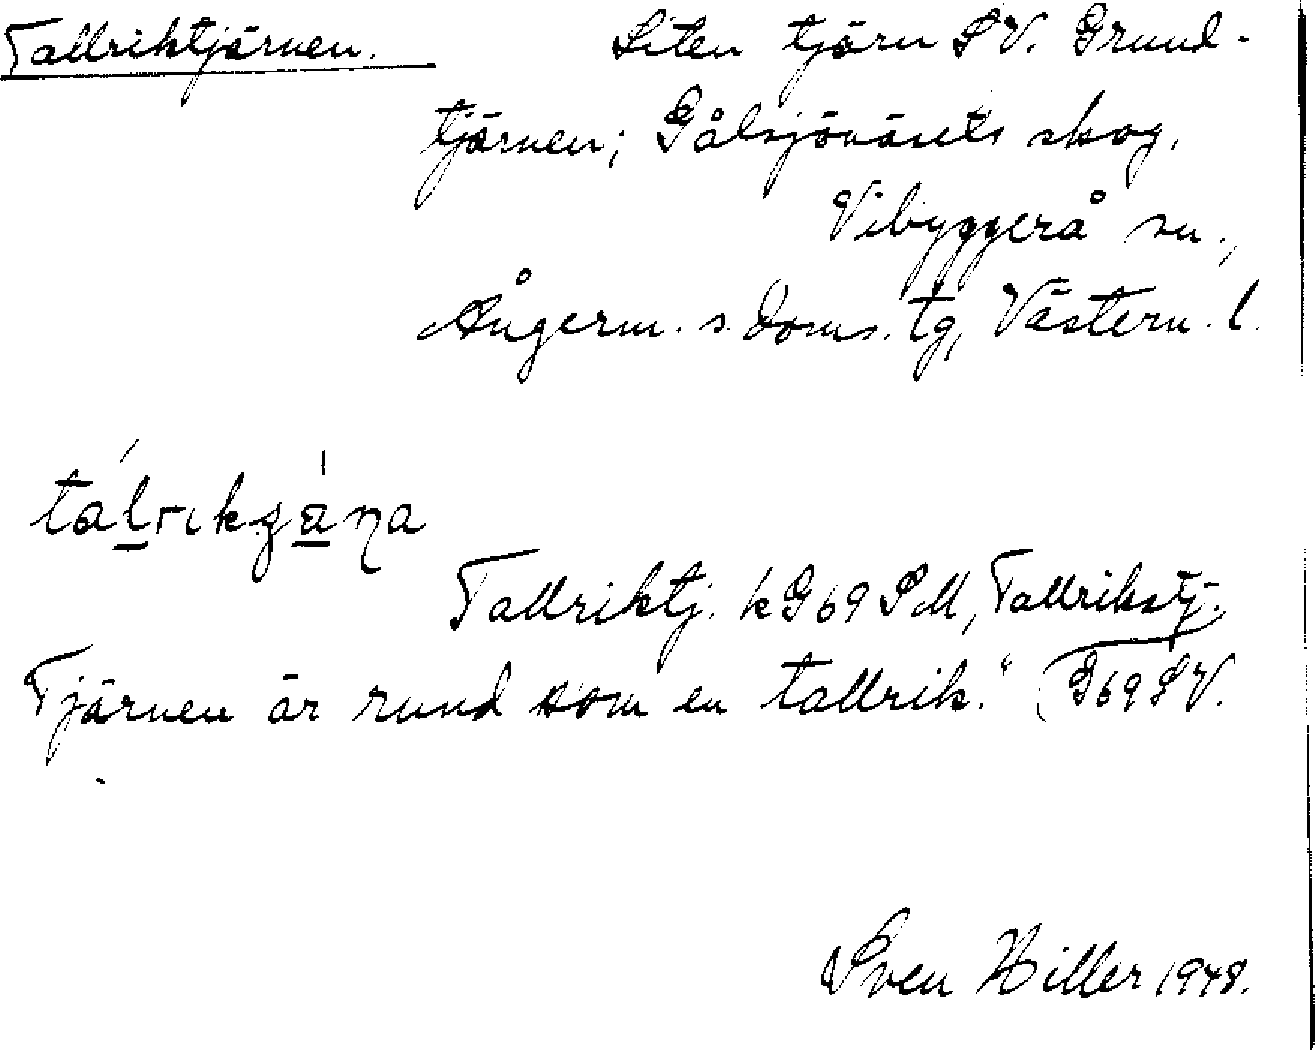 Tallriktjärnen. Liten tjärn SV. Grund-
tjärnen; Gålsjönäsets skog.
Vibyggerå sn.,
Ångerm. s. doms. tg, Västern. l.
Tallriktj. k G 69 SM, Tallrikstj.
Tjärnen är rund som en tallrik." G69 SV.
Sven Hiller 1948.